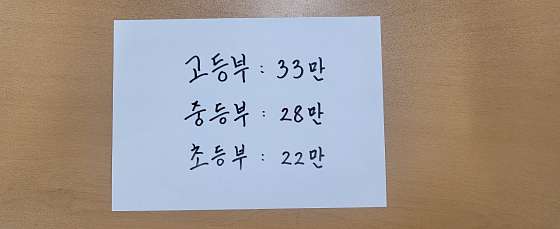 고등부 : 33만
중등부 : 28만
초등부 : 22만